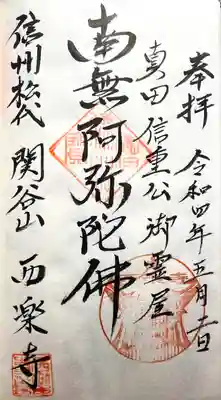 奉拝 令和四年五月一六日
真田信重公御霊屋
南無阿弥陀佛
信州松代 関谷山 西楽寺